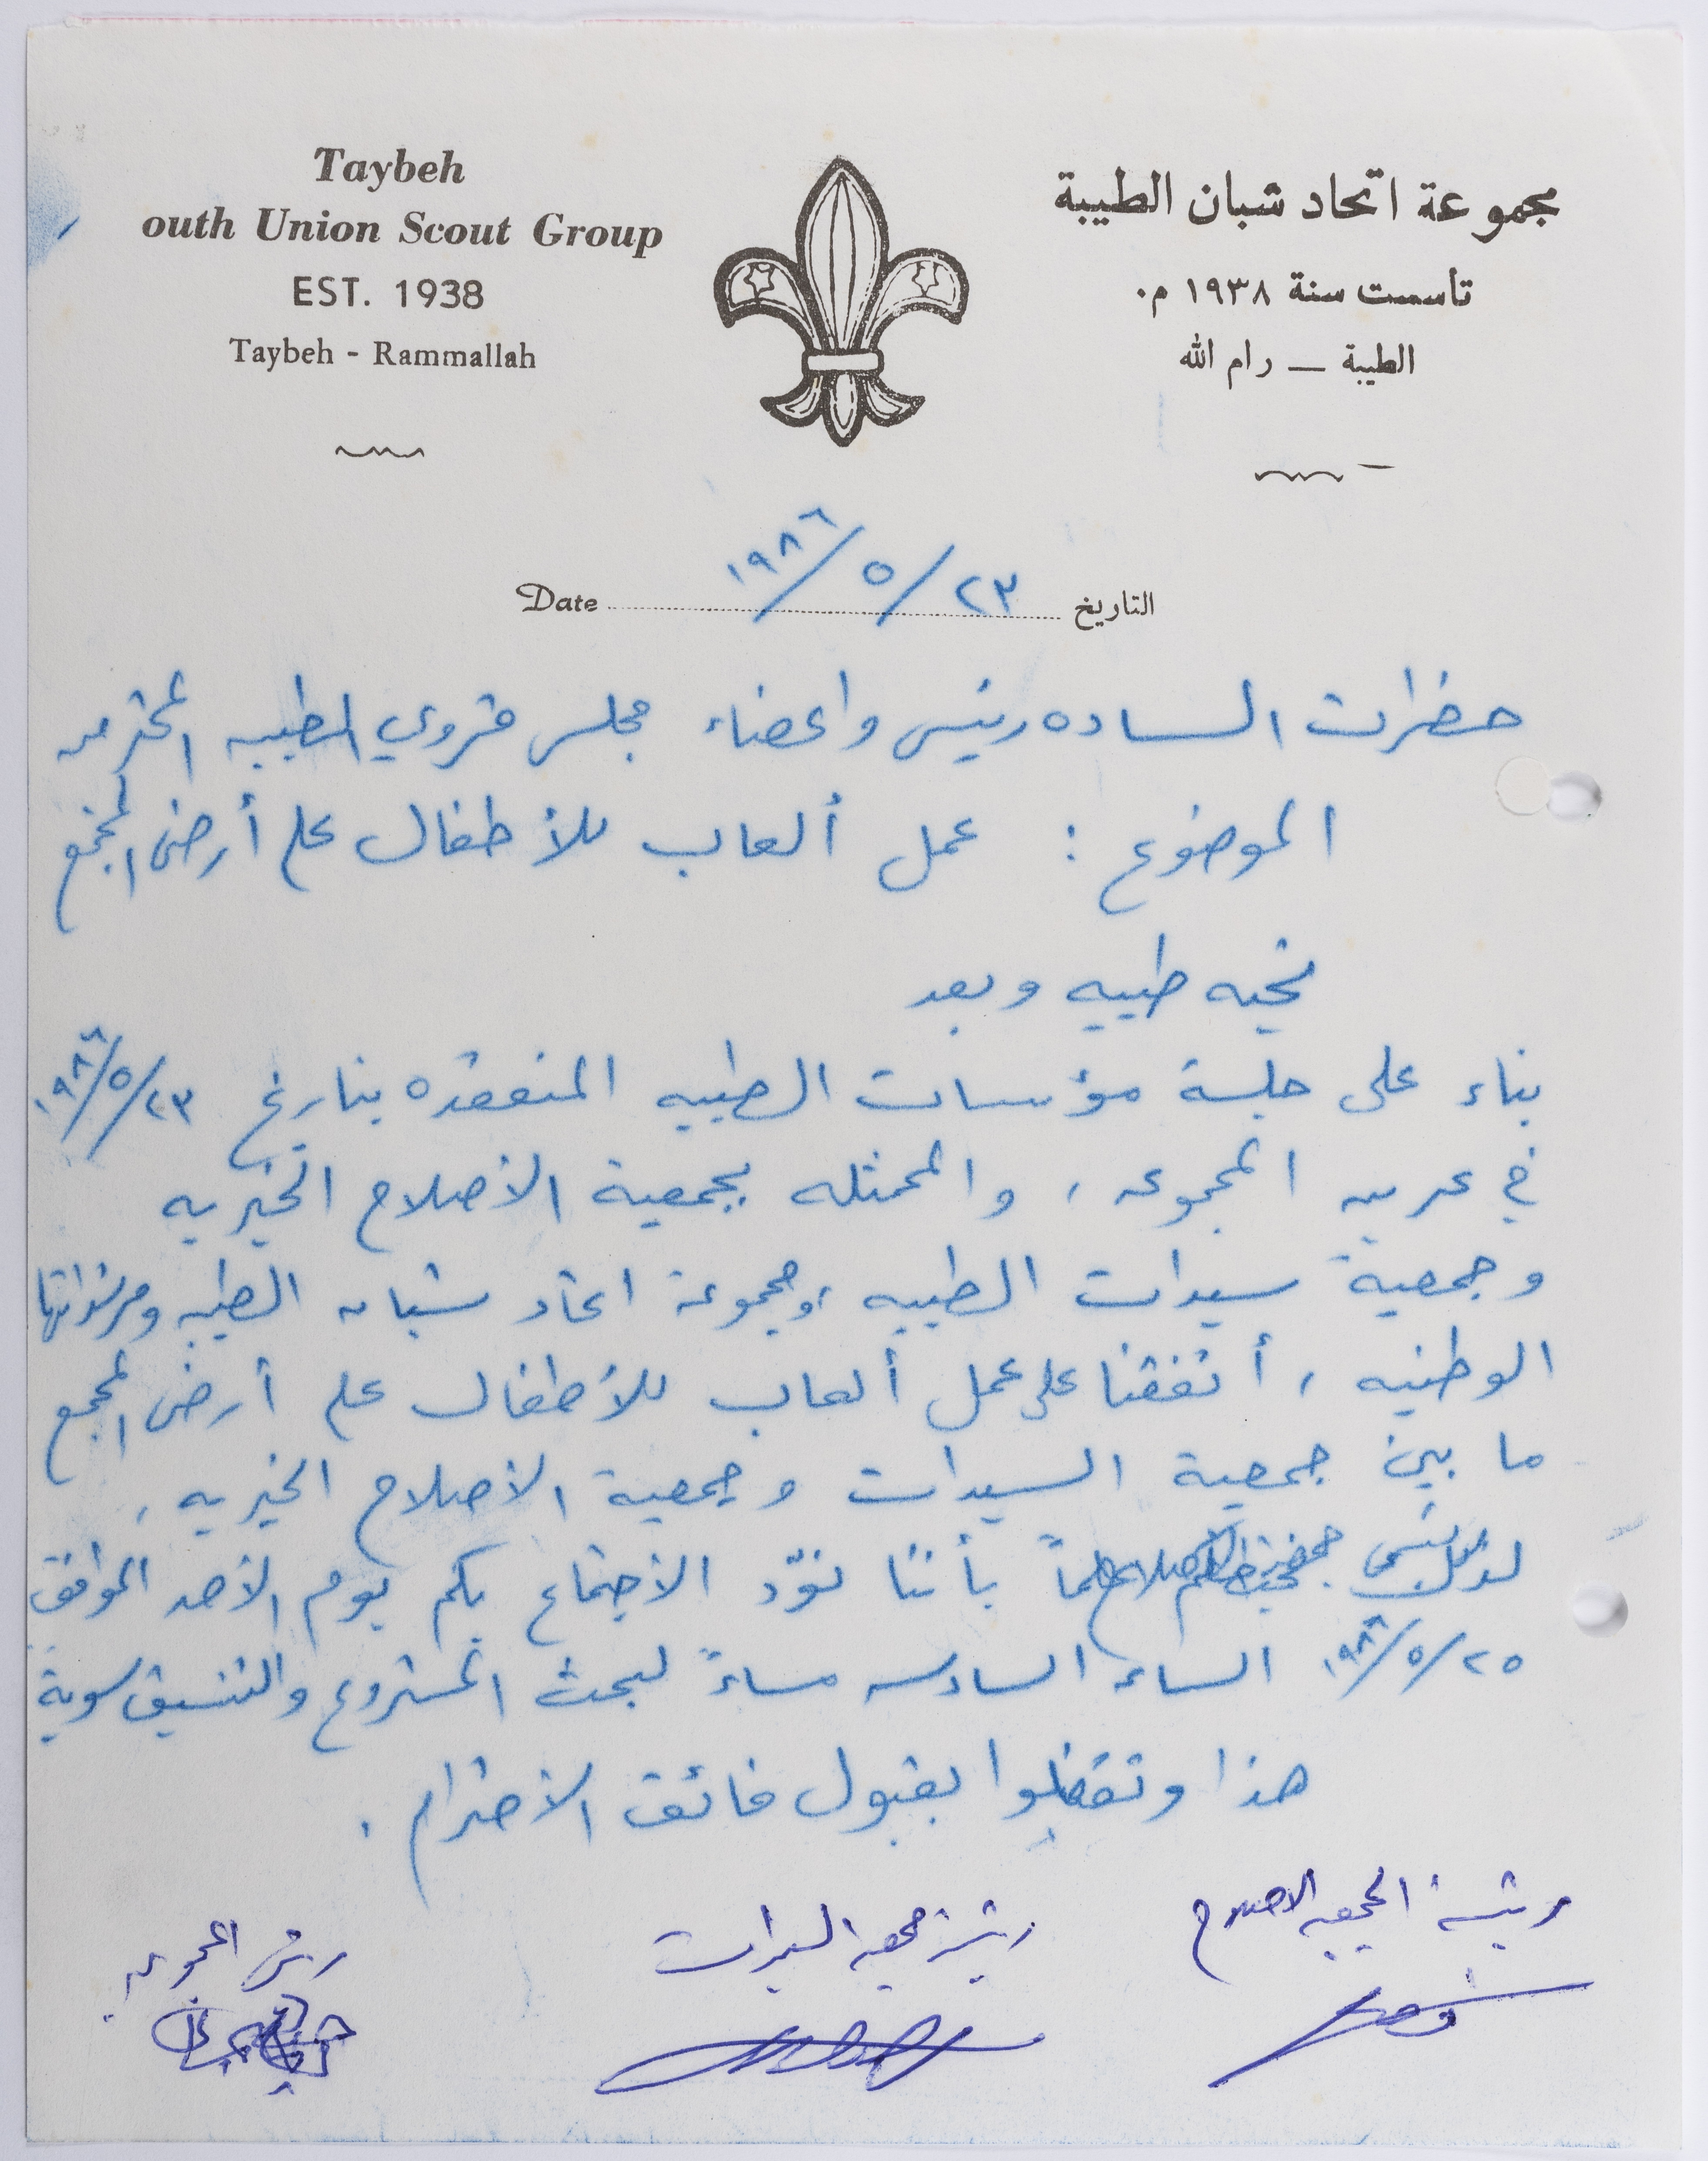 Taybeh
outh Union Scout Group
EST. 1938
Taybeh - Rammallah
مجموعة اتحاد شبان الطيبة
تأسست سنة ١٩٣٨ م٠
الطيبة — رام الله
Date ١٩٨٦/٥/٢٣ التاريخ
حضرات الساده رئيس واعضاء مجلس قروي الطيبه المحترمين
الموضوع : عمل ألعاب للأطفال على أرض المجمع
تحيه طيبه وبعد
بناء على جلسة مؤسسات الطيبه المنعقده بتاريخ ١٩٨٦/٥/٢٣
في عرين المجموعه ، والممثله بجمعية الأصلاح الخيريه
وجمعية سيدات الطيبه ،ومجموعة اتحاد شبان الطيبه ومرشداتها
الوطنيه ، أتفقنا على عمل ألعاب للأطفال على أرض المجمع
ما بين جمعية السيدات وجمعية الأصلاح الخيريه ،
لذلك بأننا نودّ الأجتماع بكم يوم الأحد الموافق
١٩٨٦/٥/٢٥ الساعه السادسه مساءً لبحث المشروع والتنسيق سوية
هذا وتفضلوا بقبول فائق الأحترام .
رئيسة الجمعيه الاصلاح
رئيسة جمعيه السيدات
رئيس المجموعه